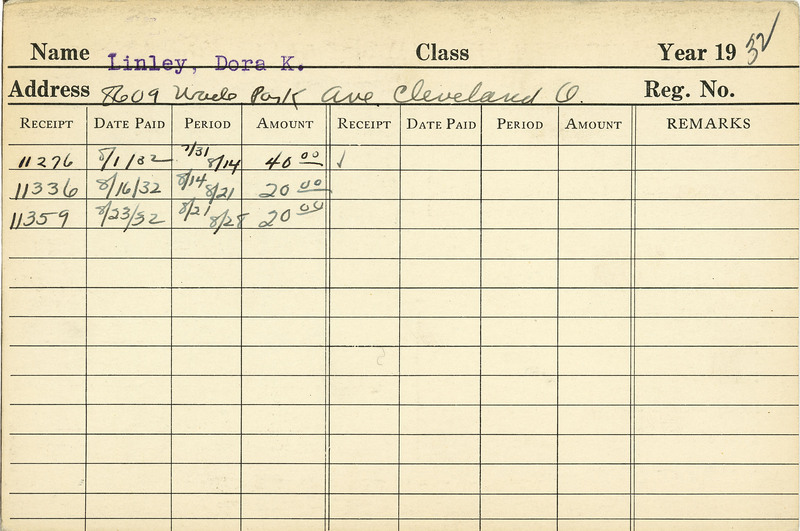 Name Linley, Dora K. Class Year 19 32
Address 8609 Wade Park Ave. Cleveland O. Reg. No.
RECEIPT DATE PAID PERIOD AMOUNT RECEIPT DATE PAID PERIOD AMOUNT REMARKS
11276 8/1/32 7/31 8/14 40 00 ✓
11336 8/16/32 8/14 8/21 20 00
11359 8/23/32 8/21 8/28 20 00